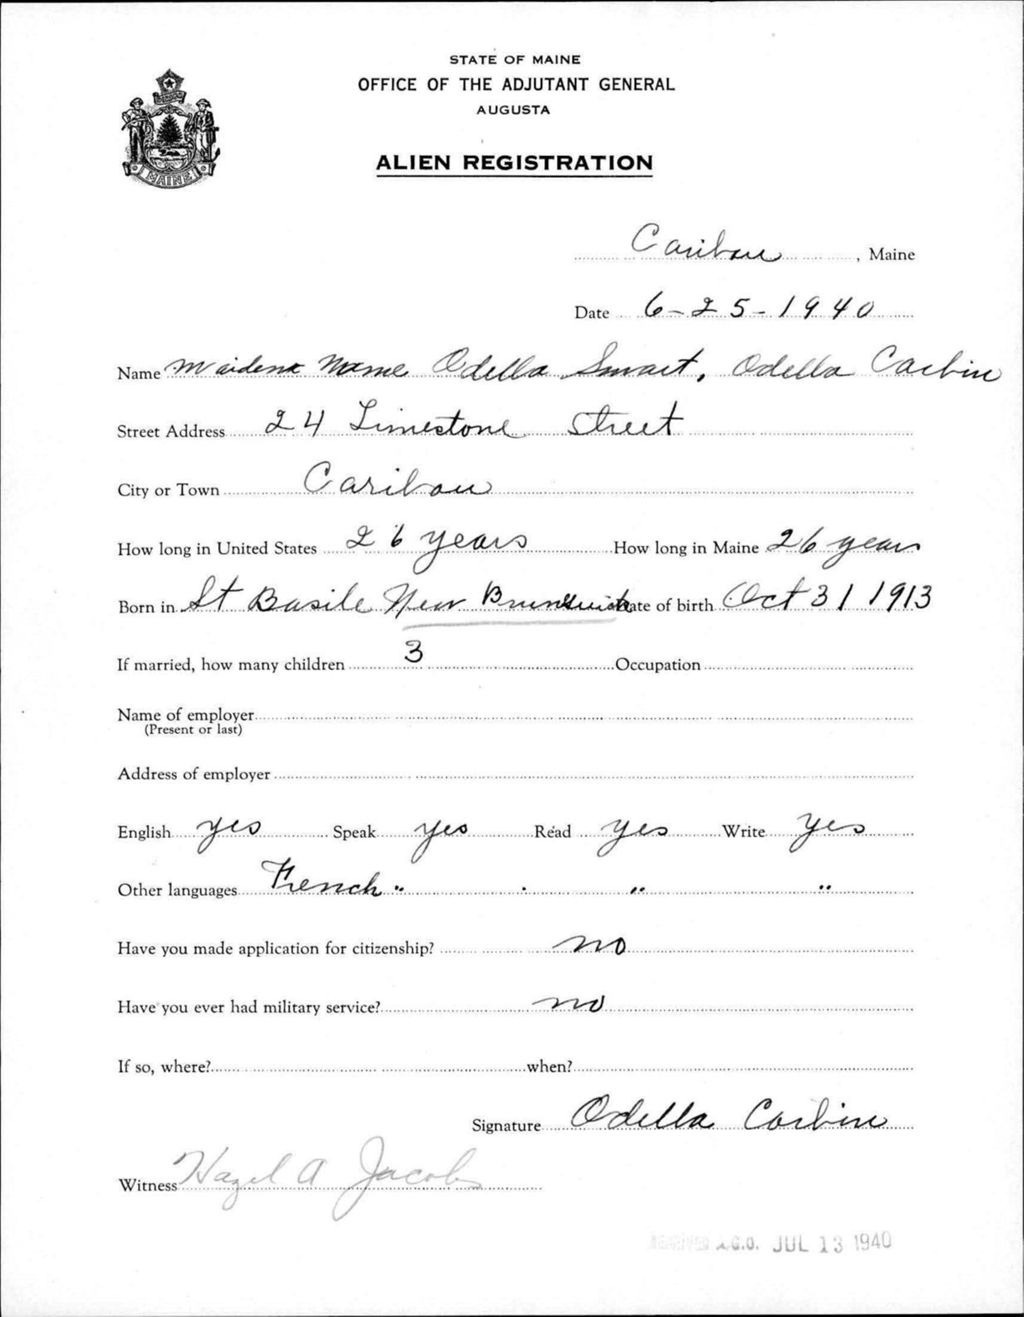 STATE OF MAINE
OFFICE OF THE ADJUTANT GENERAL
AUGUSTA
MAINE
ALIEN REGISTRATION
Caribou, Maine
Date 6-25-1940
Name Maiden Name Odella Smart, Odella Corbin
Street Address 24 Limestone Street
City or Town Caribou
How long in United States 26 years How long in Maine 26 years
Born in St Basile New Brunswick Date of birth Oct 31 1913
If married, how many children 3 Occupation
Name of employer
(Present or last)
Address of employer
English yes Speak yes Read yes Write yes
Other languages French " " " "
Have you made application for citizenship? no
Have you ever had military service? no
If so, where? when?
Signature Odella Corbin
Witness Hazel A Jacobs
RECEIVED A.G.O. JUL 13 1940